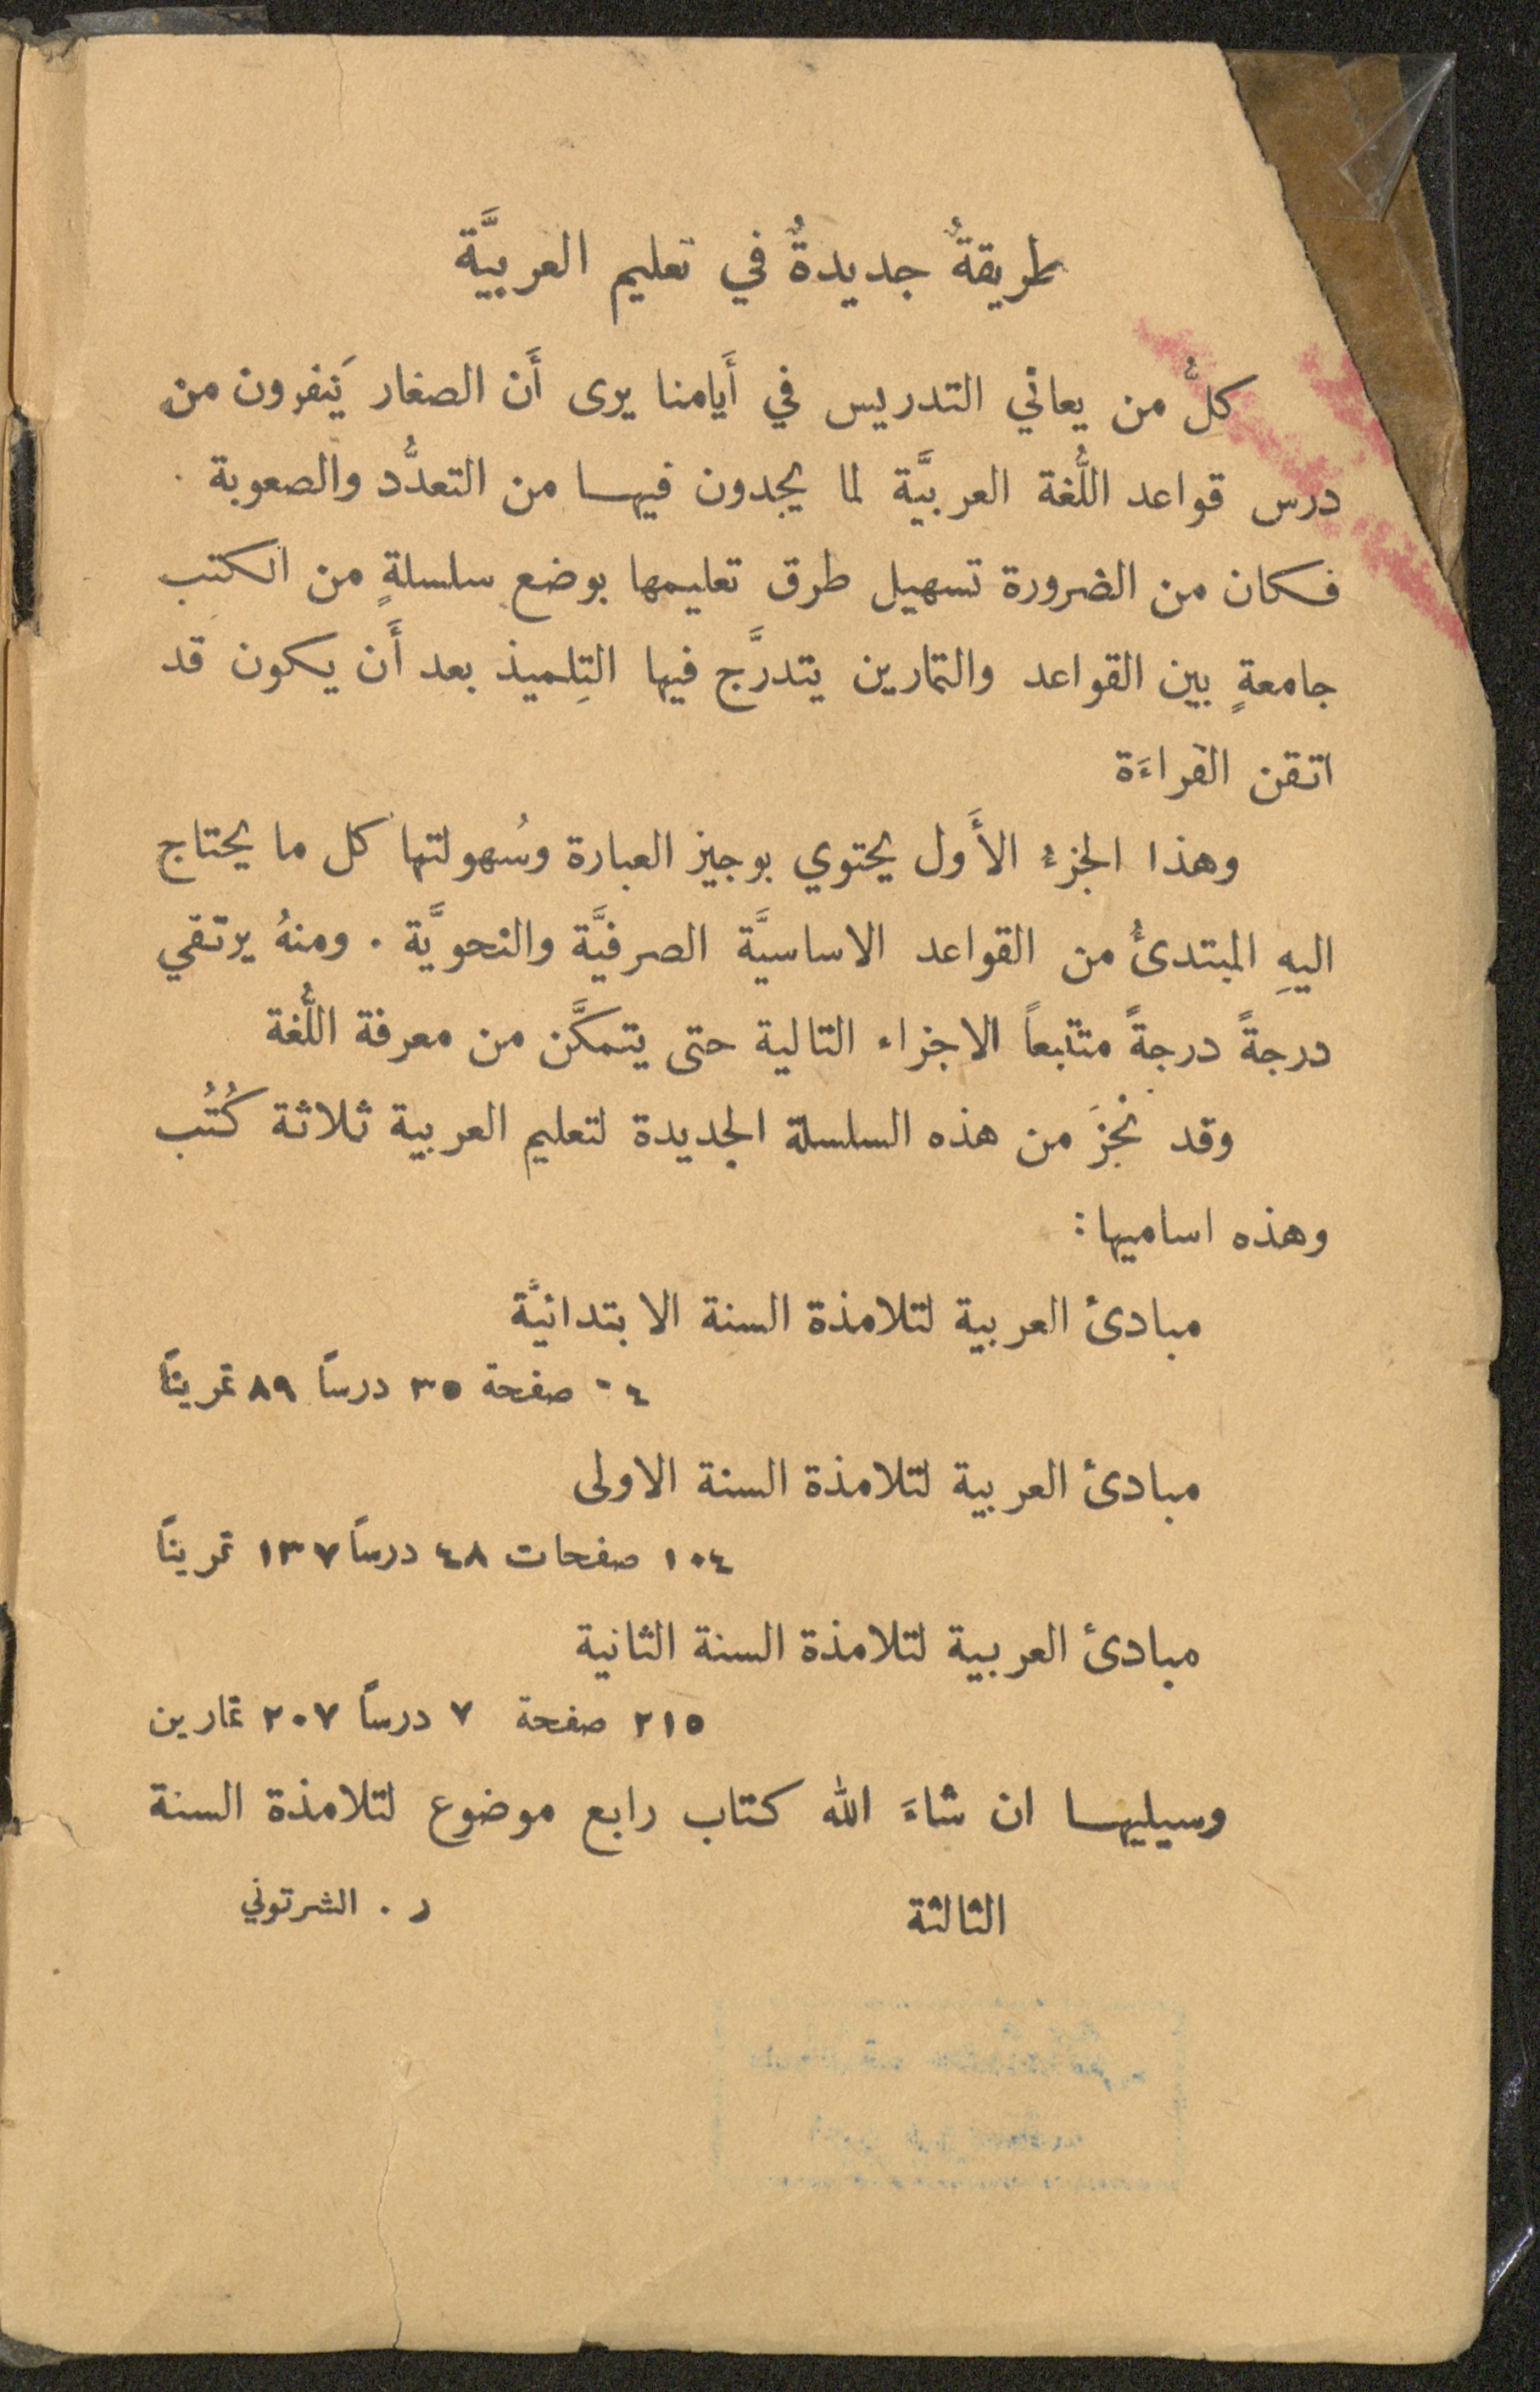 طريقةٌ جديدةٌ في تعليم العربيَّة
كلُّ من يعاني التدريس في أَيامنا يرى أَن الصغار يَنفرون من
درس قواعد اللُّغة العربيَّة لما يجدون فيهـا من التعدُّد والصعوبة .
فكان من الضرورة تسهيل طرق تعليمها بوضع سلسلةٍ من الكتب
جامعةٍ بين القواعد والتمارين يتدرَّج فيها التِلميذ بعد أَن يكون قد
اتقن القراءَة
وهذا الجزءُ الأَول يحتوي بوجيز العبارة وسُهولتها كل ما يحتاج
اليهِ المبتدئُ من القواعد الاساسيَّة الصرفيَّة والنحويَّة . ومنهُ يرتقي
درجةً درجةً متتبعاً الاجزاء التالية حتى يتمكَّن من معرفة اللُّغة
وقد نُجزَ من هذه السلسلة الجديدة لتعليم العربية ثلاثة كُتُب
وهذه اساميها :
مبادئ العربية لتلامذة السنة الابتدائيَّة
صفحة ٣٥ درساً ٨٩ تمريناً
مبادئ العربية لتلامذة السنة الاولى
١٠٤ صفحات ٤٨ درساً ١٣٧ تمريناً
مبادئ العربية لتلامذة السنة الثانية
٢١٥ صفحة ٧ درساً ٢٠٧ تمارين
وسيليهـا ان شاءَ الله كتاب رابع موضوع لتلامذة السنة
الثالثة
ر . الشرتوني